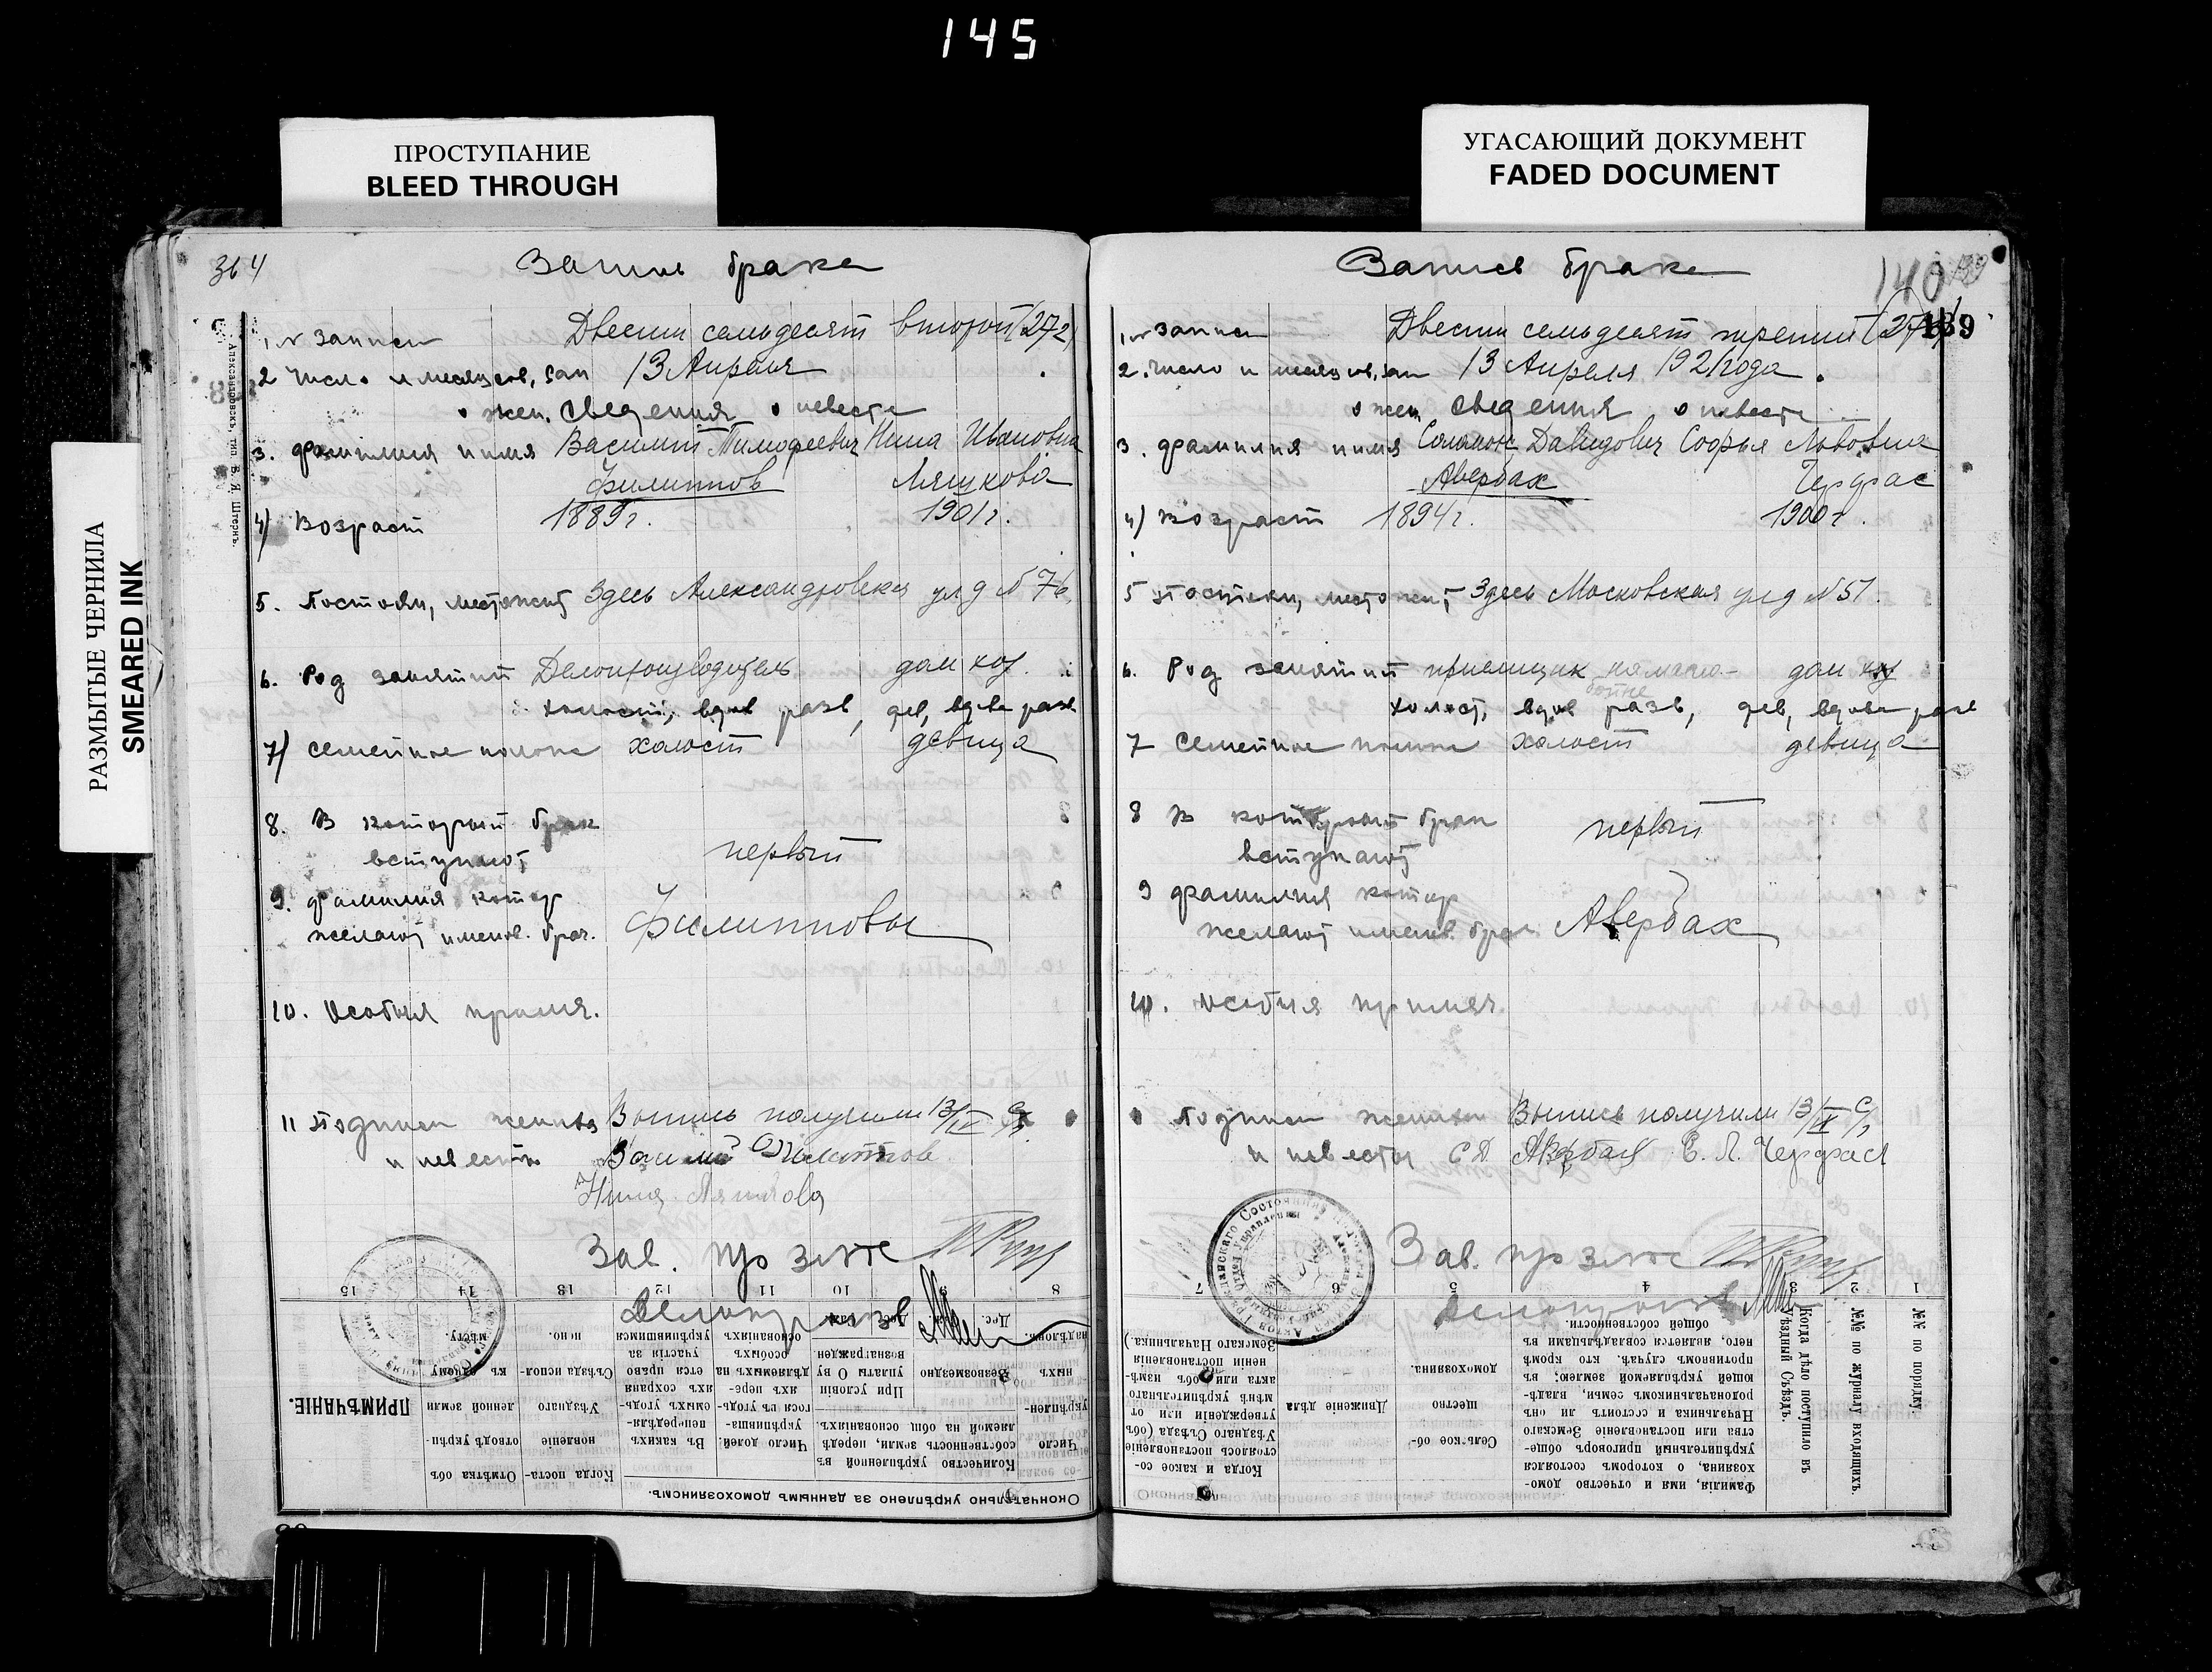 145
ПРОСТУПАНИЕ
BLEED THROUGH
УГАСАЮЩИЙ ДОКУМЕНТ
FADED DOCUMENT
РАЗМЫТЫЕ ЧЕРНИЛА
SMEARED INK
364
Запись брака
Александровскъ, тип. В. Я. Штернъ.
1. № записи Двести семьдесят второй (272)
2 Число и месяцев, зап 13 Апреля
о жен. сведения о невесте
3. фамилия и имя Василий Тимофеевич Нина Ивановна
Филиппов Ляшкова
4) Возраст 1889 г. 1901 г.
5. Постоян, местожит Здесь Александровская ул д № 76.
6. Род занятий Делопроизводитель дом хоз.
холост, вдов разв, дев, вдова разв
7) семейное полож холост девица
8. В который брак
вступают первый
9. фамилия котор
желают именов. брач. Филипповы
10. Особыя примеч.
11 Подписи жениха Выпись получили 13/IV
и невесты Василий Филиппов
Нина Ляшкова
Зав. про загс
Делопроизв
15 14 13 12 11 10 9 8
Окончательно укрѣплено за даннымъ домохозяиномъ.
Количество укрѣпленной въ собственность земли, передѣляемой на общ. основаніяхъ.
При условіи уплаты О ву вознагражден
Безвозмездно
Дес.
Число долей.
Въ какихъ
Когда поста-
новленіе
Уѣзднаго
Съѣзда испол-
нено.
Отмѣтка объ
отводѣ укрѣп-
ленной земли
къ одному
мѣсту.
ПРИМѢЧАНІЕ.
Запись брака
140
139
1. № записи Двести семьдесят третий (273)
2. Число и месяцов, зап 13 Апреля 1921 года.
о жен сведения о невесте
3. фамилия и имя Соломон Давидович Софья Львовна
Авербах Черфас
4) возраст 1894 г. 1900 г.
5 Постоян, местожит, Здесь Московская ул д № 51.
6. Род занятий приемщик дом хоз
холост, вдов разв, дев, вдова разв
7 Семейное полож холост девица
8 В который брак первый
вступают
9 фамилия котор
желают именов. брач Авербах
10. Особыя примеч.
Подписи жениха Выпись получили 13/IV
и невесты С Д Авербах С. Л. Черфас
Зав. про загс
7 6 5 4 3 2 1
№№ по порядку.
№№ по журналу входящихъ.
Когда дѣло поступило въ Уѣздный Съѣздъ.
Фамилія, имя и отчество домо-
хозяина, о которомъ состоялся
укрѣпительный приговоръ обще-
ства или постановленіе Земскаго
Начальника и состоитъ ли онъ
родоначальникомъ семьи, владѣ-
ющей укрѣпляемой землею; въ
противномъ случаѣ, кто кромѣ
него, является совладѣльцами въ
общей собственности.
Сельское об-
щество
домохозяина.
Движеніе дѣла
Когда и какое со-
стоялось постановленіе
Уѣзднаго Съѣзда (объ
утвержденіи или отмѣнѣ укрѣпительнаго
акта или объ измѣ-
неніи постановленія
Земскаго Начальника.)